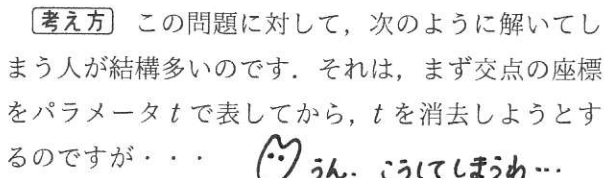 考え方 この問題に対して，次のように解いてし
まう人が結構多いのです．それは，まず交点の座標
をパラメータtで表してから，tを消去しようとす
るのですが・・・
うん．こうしてしまうわ…